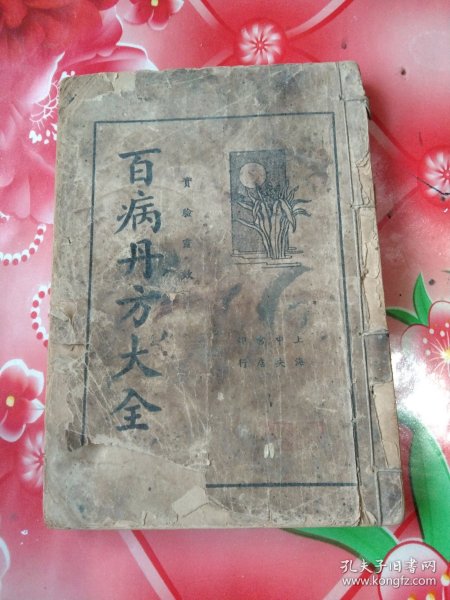 上海
中央
書店
印行
實驗靈效
百病丹方大全
孔夫子旧书网
www.kongfz.com